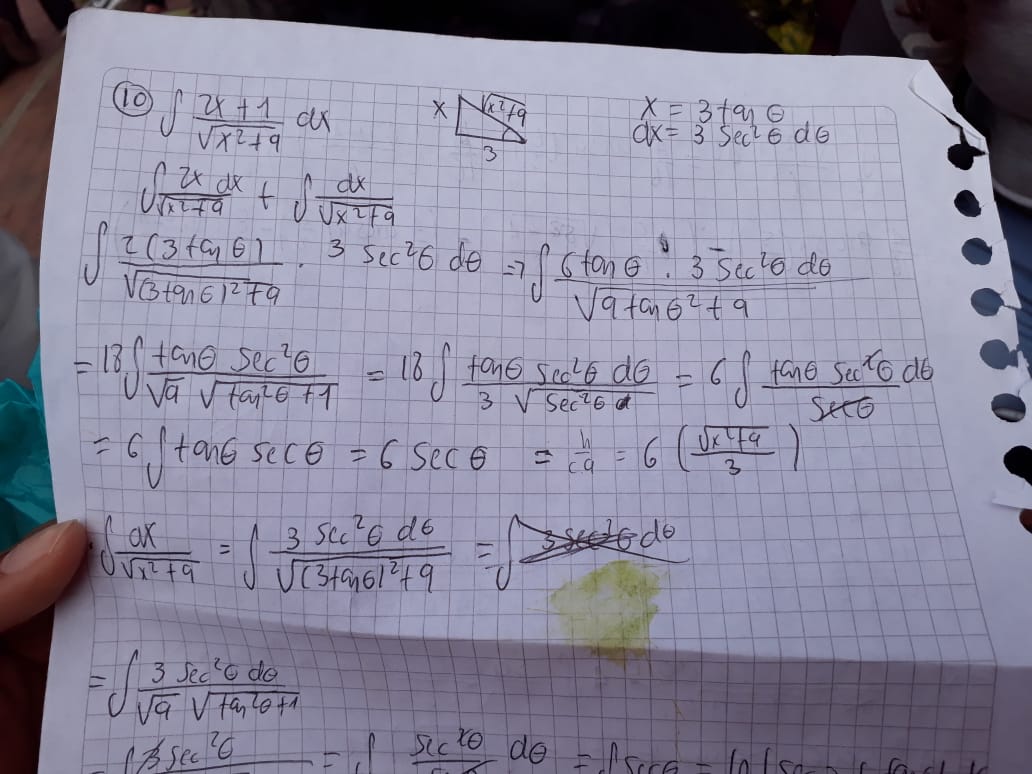 ⑩ ∫ (2x + 1)/√(x²+9) dx    x    √(x²+9)    3    x = 3 tan θ
dx = 3 sec² θ dθ
∫ 2x dx/√(x²+9) + ∫ dx/√(x²+9)
∫ 2(3 tan θ)/√((3 tan θ)²+9) · 3 sec²θ dθ => ∫ 6 tan θ · 3 sec²θ dθ/√(9 tan θ² + 9)
= 18 ∫ tanθ sec²θ/(√9 √(tan²θ + 1)) = 18 ∫ tanθ sec²θ dθ/(3 √(sec²θ)) = 6 ∫ tanθ sec²θ dθ/secθ
= 6 ∫ tanθ secθ = 6 sec θ = h/ca = 6 (√(x²+9)/3)
∫ dx/√(x²+9) = ∫ 3 sec²θ dθ/√((3 tan θ)²+9) = ∫ 3 sec²θ dθ
= ∫ 3 sec²θ dθ/(√9 √(tan²θ+1))
= ∫ 3 sec²θ = ∫ sec²θ dθ = ∫ secθ = ln